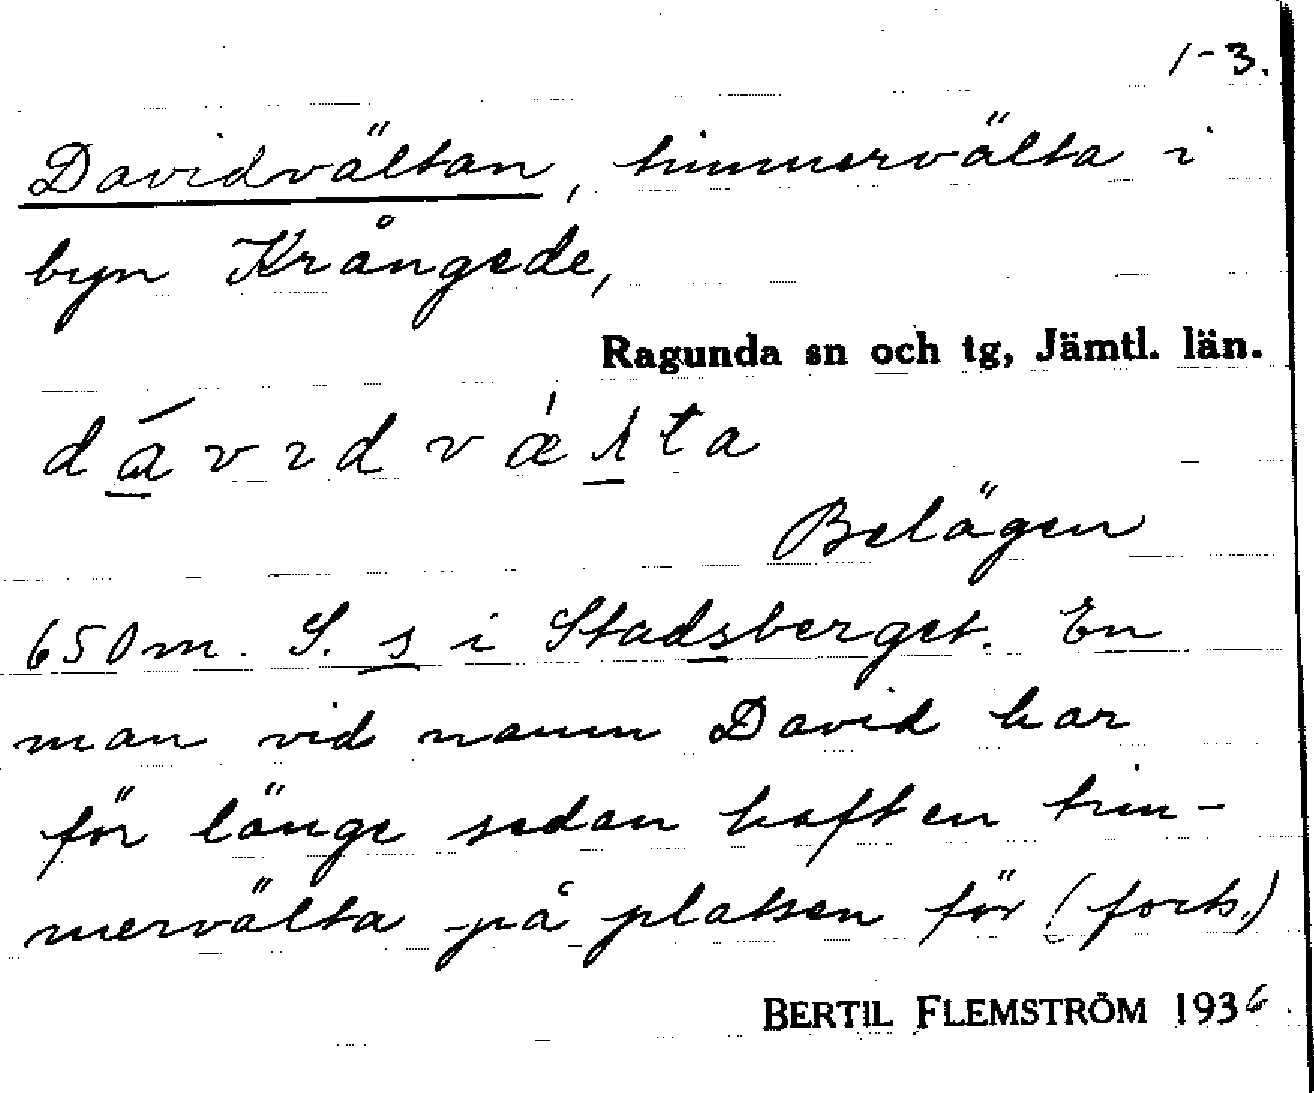 1-3.
Davidvältan, timmervälta i
byn Krångede,
Ragunda sn och tg, Jämtl. län.
dávıdvæ̀ḷta
Belägen
650 m. S. s i Stadsberget. En
man vid namn David har
för länge sedan haft en tim-
mervälta på platsen för (forts.)
BERTIL FLEMSTRÖM 1936